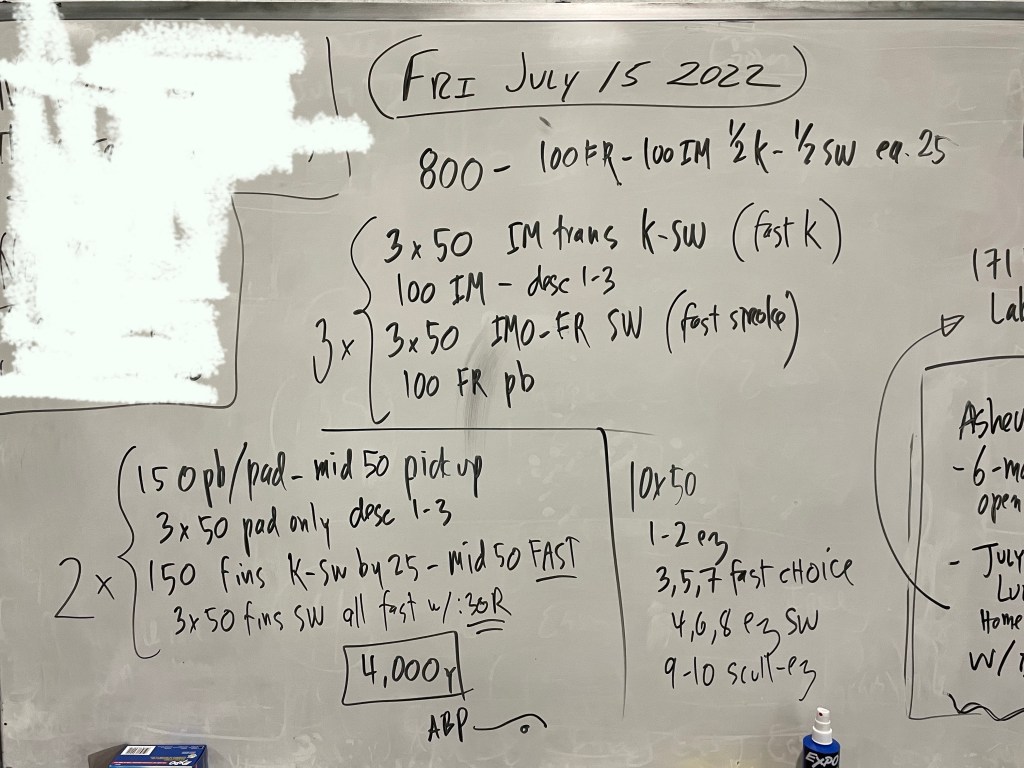 FRI JULY 15 2022
800 - 100 FR - 100 IM 1/2 K - 1/2 SW ea. 25
3 x 50 IM trans K-SW (fast K)
100 IM - desc 1-3
3 x
3 x 50 IMO-FR SW (fast smoke)
100 FR pb
150 pb/pad - mid 50 pick up
3 x 50 pad only desc 1-3
2 x
150 fins K-SW by 25 - mid 50 FAST
3 x 50 fins SW all fast w/ :30R
4,000y
ABP
10x50
1-2 ez
3,5,7 fast CHOICE
4,6,8 ez SW
9-10 scull-ez
171
- 6-
open
- JULY
Home
W/
EXPO